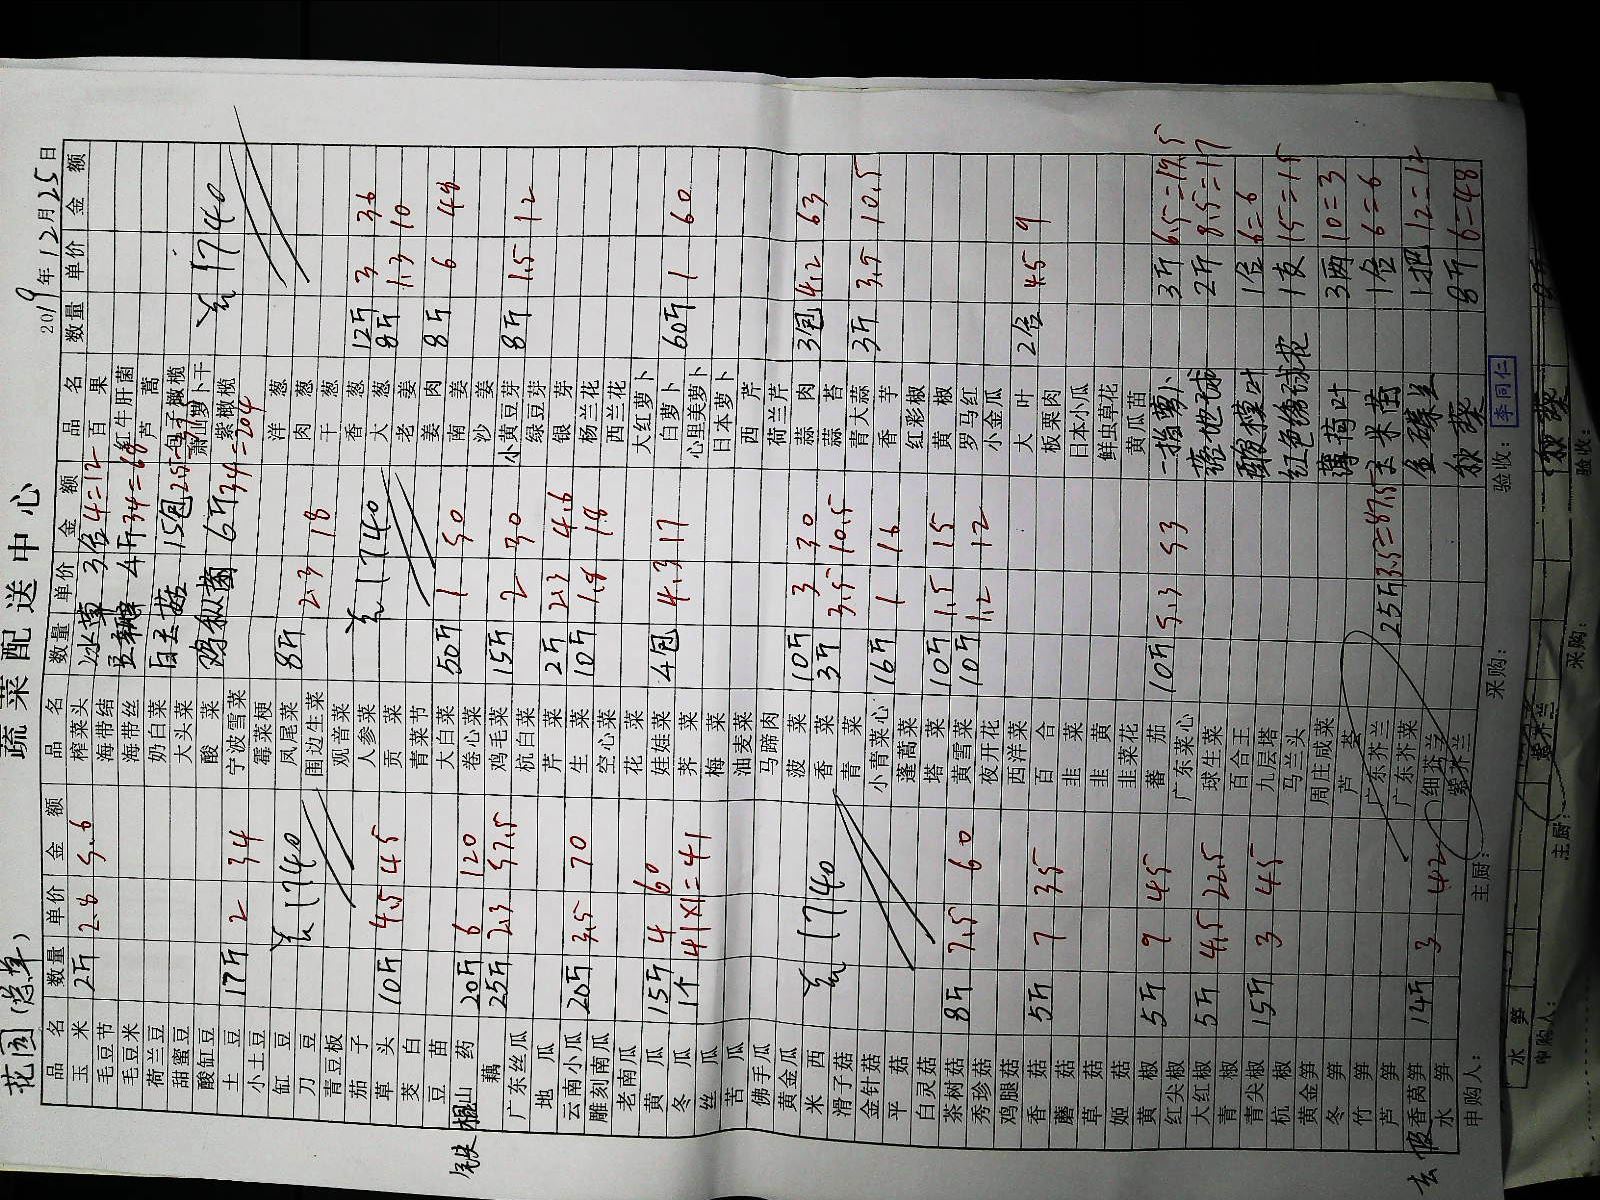 花园(总单) 蔬菜配送中心 2019年12月25日
品名 数量 单价 金额 品名 数量 单价 金额 品名 数量 单价 金额
玉米 2斤 2.8 5.6 榨菜头 冰草 3盒 4=12 百果
毛豆节 海带结 豆瓣 4斤 34=68 红牛肝菌
毛豆米 海带丝
荷兰豆 奶白菜 15包 芦蒿
甜蜜豆 大头菜 包子橄榄
酸缸豆 酸菜 鸡枞菌 6斤 34=204 萧山萝卜干
土豆 17斤 2 34 宁波雪菜 紫橄榄 1740
小土豆 霉菜梗
缸豆 1740 凤尾菜 8斤 2.3 18 洋葱
刀豆 围边生菜 肉葱
青豆板 观音菜 干葱
茄子 人参菜 1740 香葱 12斤 3 36
草头 10斤 4.5 45 贡菜 大葱 8斤 1.3 10
茭白 青菜节 老姜
豆苗 大白菜 50斤 1 50 姜肉 8斤 6 48
铁棍山药 20斤 6 120 卷心菜 南姜
藕 25斤 2.3 57.5 鸡毛菜 15斤 2 30 沙姜
广东丝瓜 杭白菜 小黄豆芽 8斤 1.5 12
地瓜 芹菜 2斤 2.3 4.6 绿豆芽
云南小瓜 20斤 3.5 70 生菜 10斤 1.8 18 银芽
雕刻南瓜 空心菜 杨兰花
老南瓜 花菜 西兰花
黄瓜 15斤 4 60 娃娃菜 4包 4.3 17 大红萝卜
冬瓜 1个 41×1=41 荠菜 白萝卜 60斤 1 60
丝瓜 梅菜 心里美萝卜
苦瓜 油麦菜 日本萝卜
佛手瓜 马蹄肉 西芹
黄金瓜 菠菜 10斤 3 30 荷兰芹
米西 1740 香菜 3斤 3.5 10.5 蒜肉 3包 4.2 63
滑子菇 青菜 蒜苔
金针菇 小青菜心 16斤 1 16 青大蒜 3斤 3.5 10.5
平菇 蓬蒿菜 香芋
白灵菇 塔菜 10斤 1.5 15 红彩椒
茶树菇 8斤 7.5 60 黄雪菜 10斤 1.2 12 黄椒
秀珍菇 夜开花 罗马红
鸡腿菇 西洋菜 小金瓜
香菇 5斤 7 35 百合 大叶 2盒 4.5 9
蘑菇 韭菜 板栗肉
草菇 韭黄 日本小瓜
姬菇 韭菜花 鲜虫草花
黄椒 5斤 9 45 蕃茄 10斤 5.3 53 黄瓜苗
红尖椒 广东菜心 一指萝卜 3斤 6.5=19.5
大红椒 5斤 4.5 22.5 球生菜 2斤 8.5=17
青椒 百合王 酸模叶 1盒 6=6
青尖椒 15斤 3 45 九层塔 红色绣球花 1支 15=15
杭椒 马兰头
黄金笋 周庄咸菜 薄荷叶 3两 10=3
冬笋 芦荟
竹笋 广东芥兰 25斤 3.5=87.5 1盒 6=6
芦笋 广东芥菜 1把 12=12
香莴笋 14斤 3 42 细芸子 秋葵 8斤 6=48
水笋 紫芥兰
申购人: 主厨: 采购: 验收: 李同仁
水笋 紫芥兰 秋葵
申购人: 主厨: 采购: 验收: